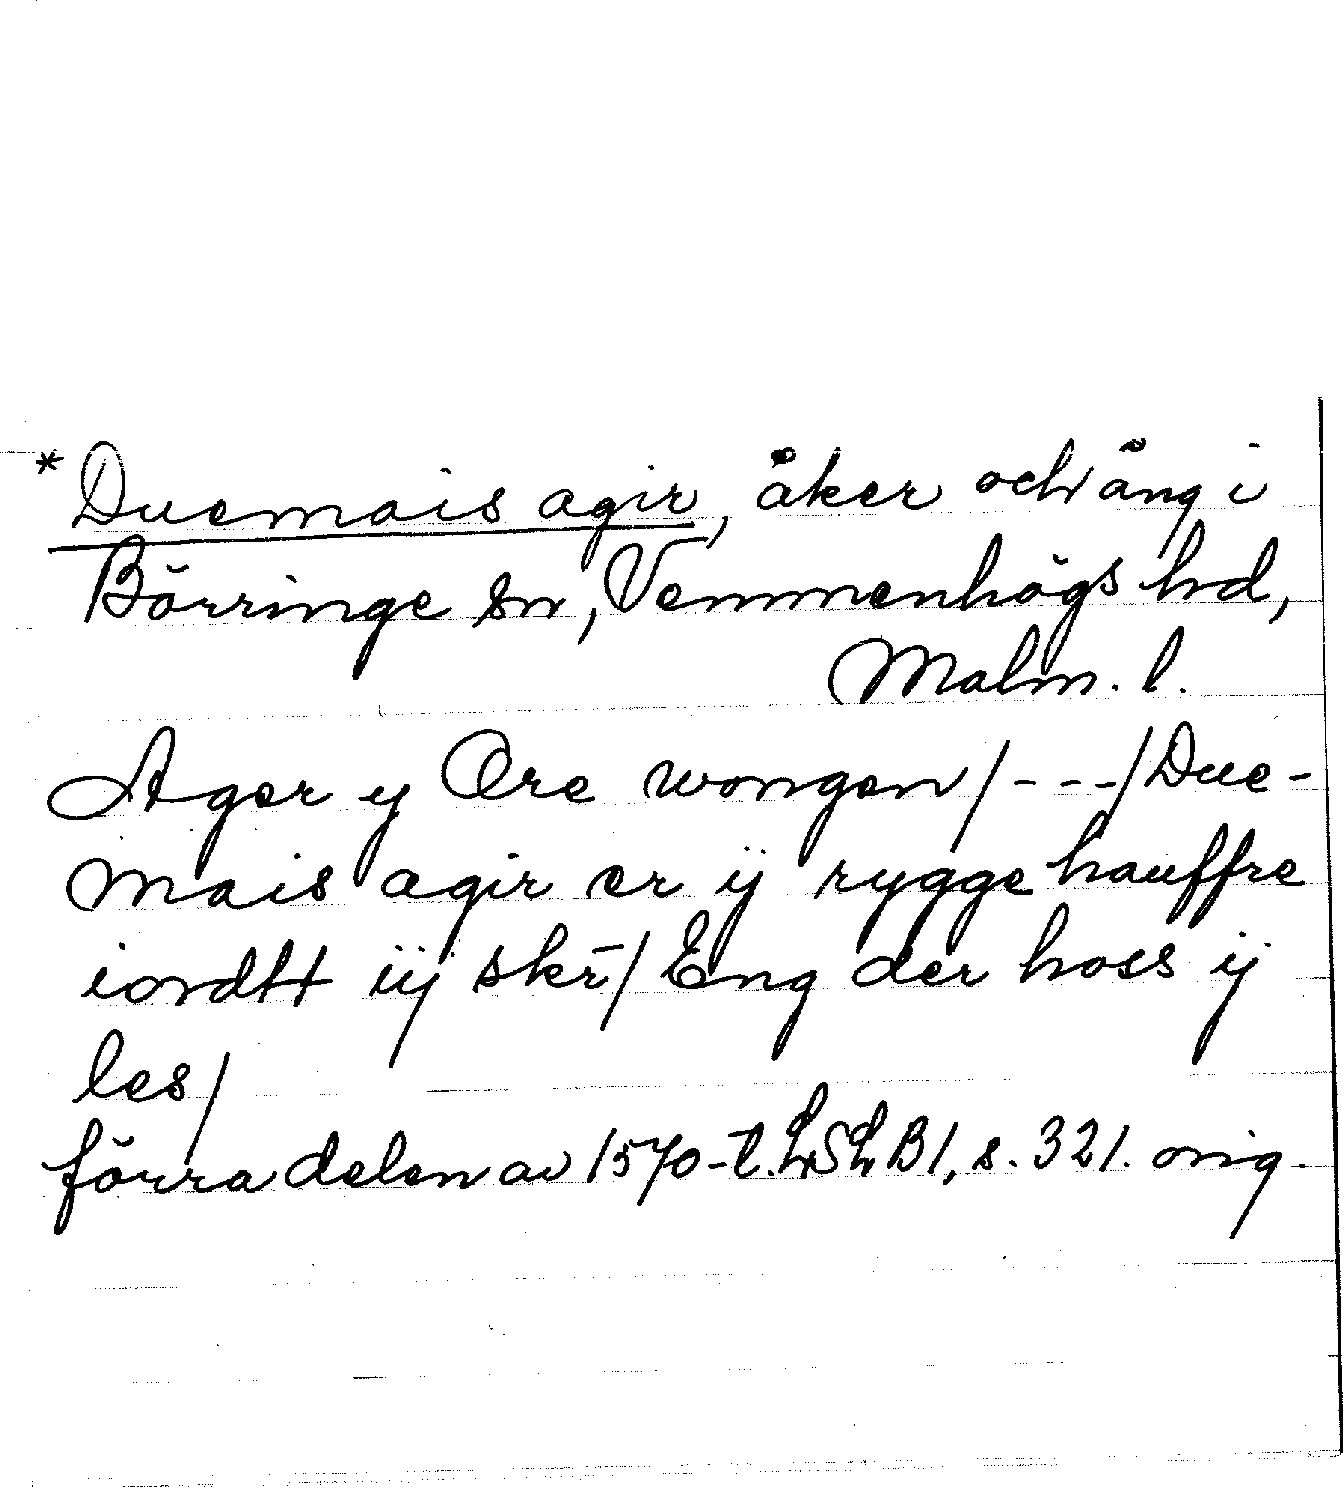 * Duemais agir, åker och äng i
Börringe sn, Vemmenhögs hd,
Malm. l.
Ager y Øre wongen/---/Due-
mais agir er ij rygge hauffre
iordtt iij skr̄/Eng der hoss ij
les/
förra delen av 1570-t. LSL B1, s. 321. orig.